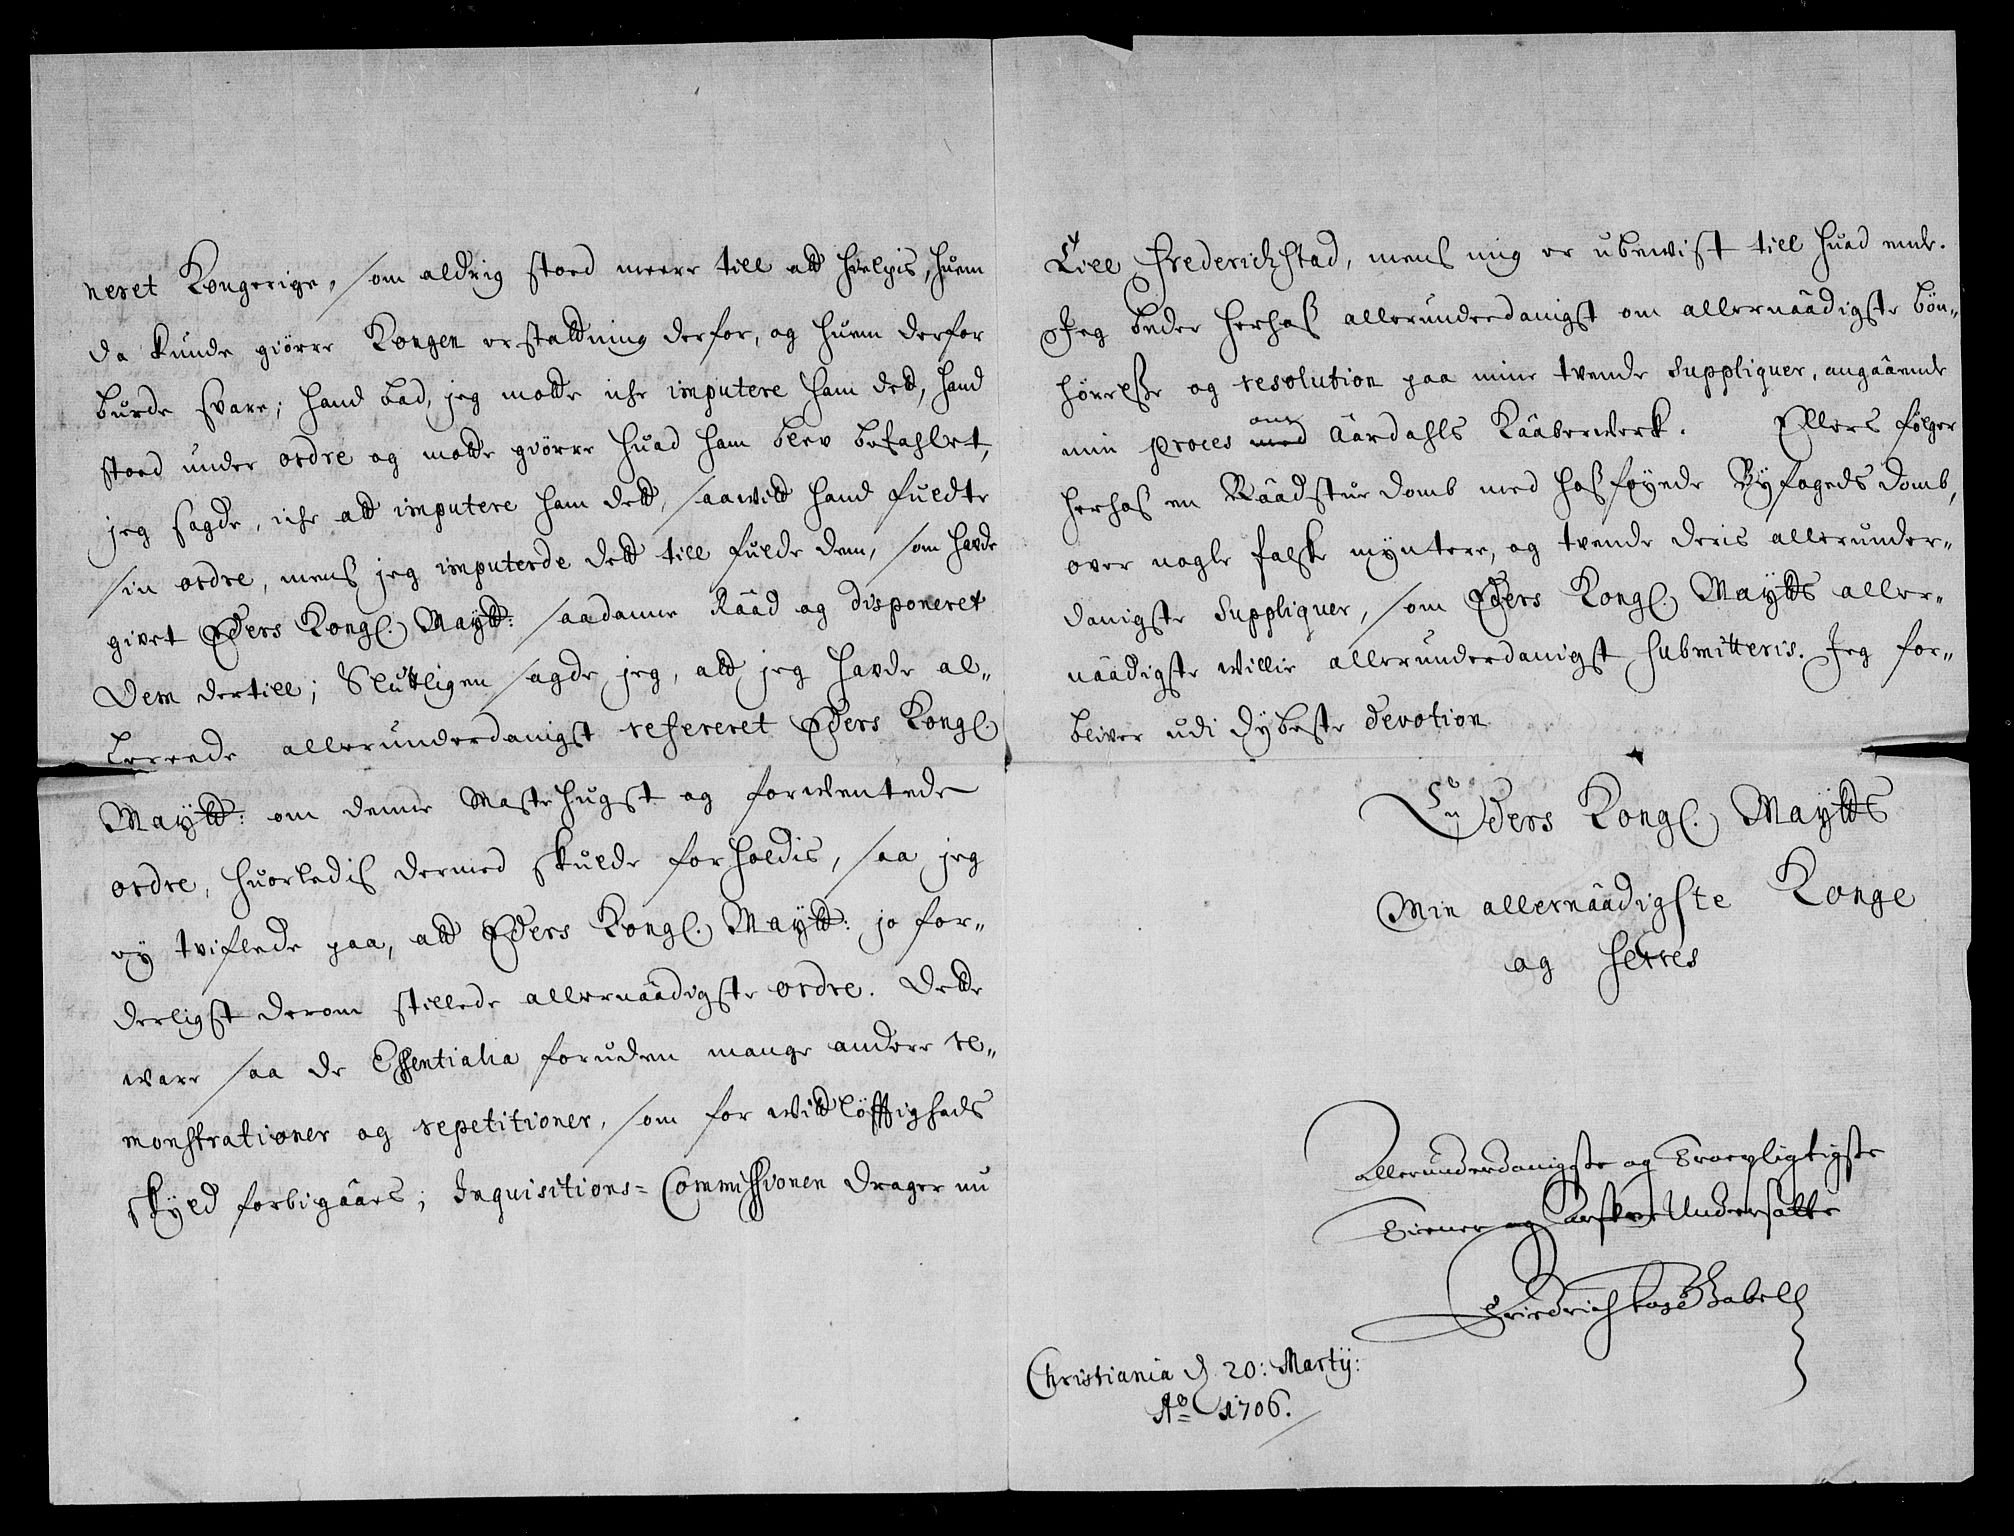 neret Kongerige, som aldrig stoed meere till att hielpis, huem
da kunde giørre Kongen erstattning derfor, og huem derfor
burde svare; hand bad, jeg motte iche imputere ham dett, hand
stoed under ordre og motte giørre huad ham blev befahlet,
jeg sagde, iche att imputere ham dett, saawitt hand fuldte
sin ordre, mens jeg imputerde dett till fulde dem, som hafde
givet Eders Kongl. Maytt: saadanne Råad og disponeret
dem dertill; Sluttligen sagde jeg, att jeg hafde al„
lereede allerunderdanigst refereret Eders Kongl.
Maytt: om denne Mastehugst og forwentede
ordre, huorledis dermed skulde forholdis, saa jeg
ey tviflede paa, att Eders Kongl. Maytt: jo for„
derligst derom stillede allernåadigste ordre. Dette
ware saa de Essentialia foruden mange andere re„
monstrationer og repetitioner, som for wittløfftigheds
skyld forbigåaes; Inquisitions= Commissionen drager nu
Till Friderichstad, mens mig er ubewist till huad ende.
Jeg beder herhos allerunderdanigst om allernåadigste bøn„
hørelse og resolution paa mine tvende Suppliquer, angåaende
min proces med om Åardahls Kååberwerk. Ellers følger
herhos en Råadstue domb med hosføyede Byfogeds domb,
over nogle falske myntere, og tvende deris allerunder„
danigste Suppliquer, som Eders Kongl. Maytts aller„
nåadigste willie allerunderdanigst submitteris. Jeg for„
bliver udi dybeste devotion
Eders Kongl. Maytts
Min allernåadigste Konge
og Herres
Allerunderdanigste og Troepligtigste
Tiener og Undersatte
Friderich Gabell
Christiania d. 20: Martij:
Ao 1706.